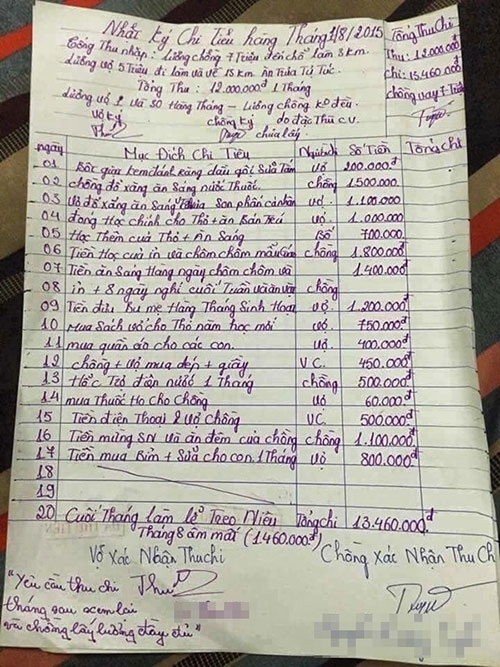 Nhất Ký Chi Tiêu hàng Tháng 1/8/2015
Tổng Thu Chi
Thu: 12.000.000đ
Chi: 13.460.000đ
chồng vay 7 Triệu
Tổng Thu nhập: Lương chồng 7 Triệu đến chỗ làm 3 Km.
Lương vợ 5 Triệu đi làm và về 15 Km ăn Trưa Tự Túc.
Tổng Thu: 12.000.000đ 1 Tháng
Lương vợ L và SO Hàng Tháng - Lương chồng Ko đều
vợ Ký chồng Ký do đặc Thù C.V.
chưa lấy
ngày Mục Đích Chi Tiêu Người chi Số Tiền Tổng chi
01 Bột giặt Kem đánh răng dầu gội Sữa Tắm vợ 200.000đ
02 chồng đổ xăng ăn Sáng nước Thuốc. chồng 1.500.000
03 Vợ đổ xăng ăn Sáng Son phấn cá nhân vợ 1.100.000
04 đóng Học chính cho Thỏ + ăn Bán Trú vợ 1.000.000
05 Học Thêm của Thỏ + Ăn Sáng Bố 700.000
06 Tiền Học của in và chôm chôm mẫu giáo chồng 1.800.000đ
07 Tiền ăn Sáng Hàng ngày chôm chôm và 1.400.000đ
08 in + 8 ngày nghỉ cuối Tuần và ăn vặt chồng
09 Tiền điếu bu mẹ Hàng Tháng Sinh Hoạt vợ. 1.200.000đ
10 Mua Sách vở cho Thỏ năm học mới vợ 750.000đ
11 mua quần áo cho các con. vợ 400.000đ
12 chồng + Vợ mua dép + giầy V.C. 450.000đ
13 điện nước 1 Tháng chồng 500.000đ
14 mua Thuốc Ho cho Chồng vợ 60.000đ
15 Tiền điện Thoại 2 Vợ Chồng VC 500.000đ
16 Tiền mừng SN và ăn đêm của chồng chồng 1.100.000đ
17 Tiền mua Bỉm + Sữa cho con. 1 Tháng vợ 800.000đ
18
19
20 Cuối Tháng làm lễ Treo Niêu Tổng chi 13.460.000đ
Tháng 8 âm mất (1.460.000đ)
Vợ Xác Nhận Thu chi Chồng Xác Nhận Thu Chi
"Yêu cầu thu chi
tháng sau xem lại
và chồng lấy lương đầy đủ"